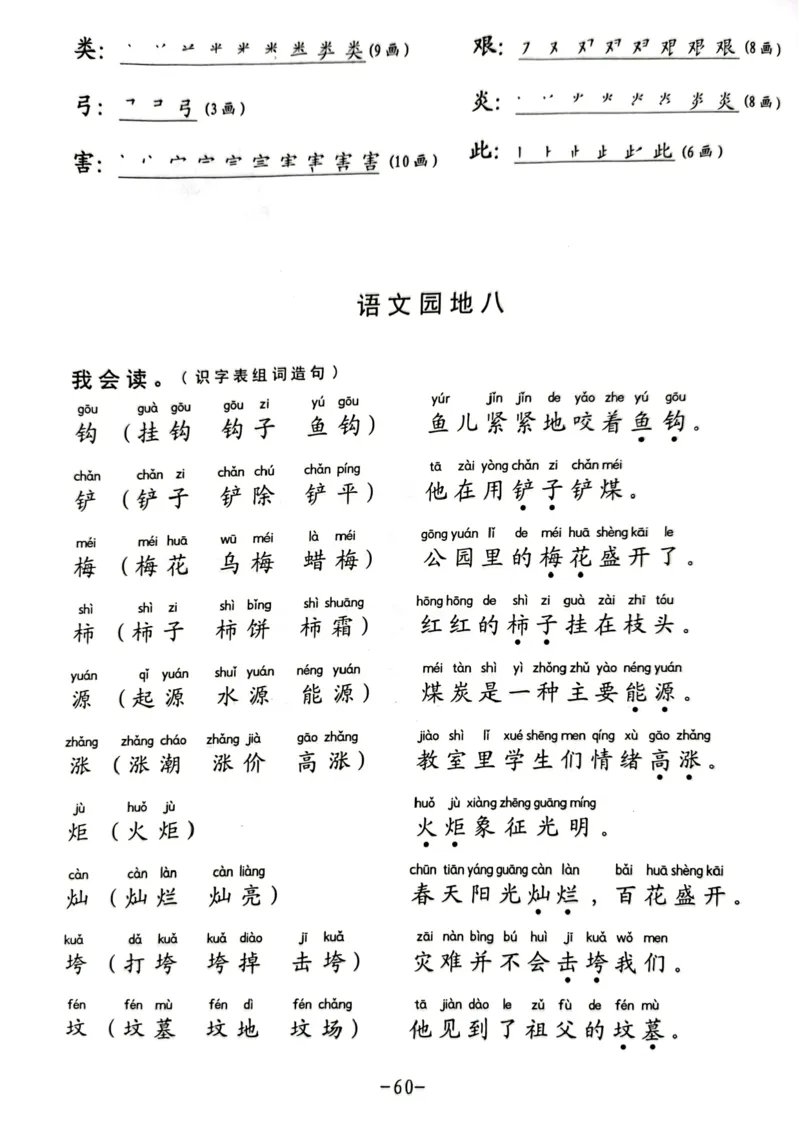 类：丶 丷 䒑 半 米 米 类 类 类(9画)
艰：フ ヌ 对 艰 艰 艰 艰 艰(8画)
弓：乛 コ 弓(3画)
炎：丶 丷 少 火 火 炎 炎 炎(8画)
害：丶 丷 宀 宀 宀 宀 宔 害 害 害(10画)
此：丨 卜 止 止 此 此(6画)
语文园地八
我会读。(识字表组词造句)
gōu guà gōu gōu zi yú gōu yúr jǐn jǐn de yǎo zhe yú gōu
钩 (挂钩 钩子 鱼钩) 鱼儿紧紧地咬着鱼钩。
chǎn chǎn zi chǎn chú chǎn píng tā zài yòng chǎn zi chǎn méi
铲 (铲子 铲除 铲平) 他在用铲子铲煤。
méi méi huā wū méi là méi gōng yuán lǐ de méi huā shèng kāi le
梅 (梅花 乌梅 蜡梅) 公园里的梅花盛开了。
shì shì zi shì bǐng shì shuāng hōng hōng de shì zi guà zài zhī tóu
柿 (柿子 柿饼 柿霜) 红红的柿子挂在枝头。
yuán qǐ yuán shuǐ yuán néng yuán méi tàn shì yì zhǒng zhǔ yào néng yuán
源 (起源 水源 能源) 煤炭是一种主要能源。
zhǎng zhǎng cháo zhǎng jià gāo zhǎng jiào shì lǐ xué shēng men qíng xù gāo zhǎng
涨 (涨潮 涨价 高涨) 教室里学生们情绪高涨。
jù huǒ jù huǒ jù xiàng zhēng guāng míng
炬 (火炬) 火炬象征光明。
càn càn làn càn liàng chūn tiān yáng guāng càn làn bǎi huā shèng kāi
灿 (灿烂 灿亮) 春天阳光灿烂，百花盛开。
kuǎ dǎ kuǎ kuǎ diào jī kuǎ zāi nàn bìng bú huì jī kuǎ wǒ men
垮 (打垮 垮掉 击垮) 灾难并不会击垮我们。
fén fén mù fén dì fén chǎng tā jiàn dào le zǔ fù de fén mù
坟 (坟墓 坟地 坟场) 他见到了祖父的坟墓。
-60-